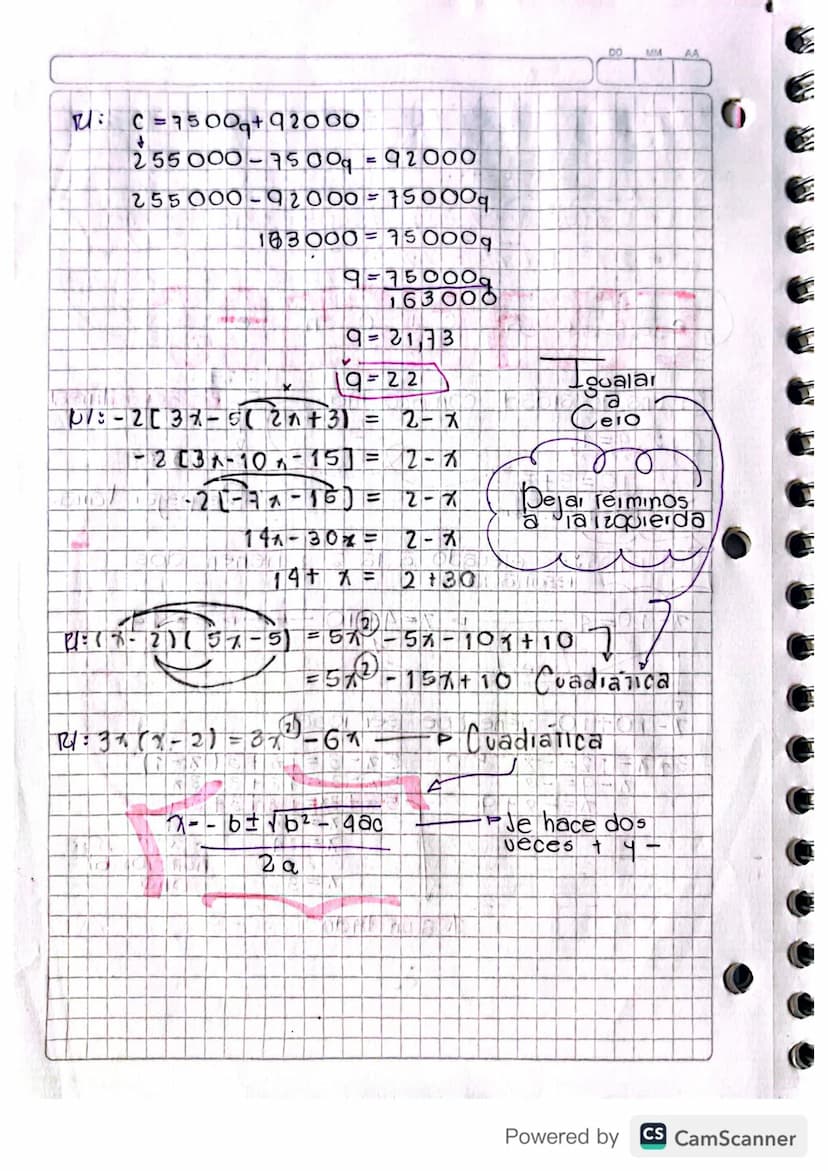 DD MM AA
R/: C = 7500q + 92000
255000 - 7500q = 92000
255000 - 92000 = 75000q
163000 = 75000q
q = 75000q
163000
q = 21,73
q = 22
Igualar
a
Cero
R/: -2[3x - 5(2x+3) = 2 - x
-2[3x - 10x - 15] = 2 - x
-2[-7x - 15] = 2 - x
Dejar términos
a la izquierda
14x - 30x = 2 - x
14 + x = 2 + 30
R/: (x - 2)(5x - 5) = 5x² - 5x - 10x + 10
= 5x² - 15x + 10 Cuadrática
R/: 3x(x - 2) = 3x² - 6x → Cuadrática
x = - b ± √b² - 4ac → Se hace dos
veces + y -
2a
Powered by CS CamScanner